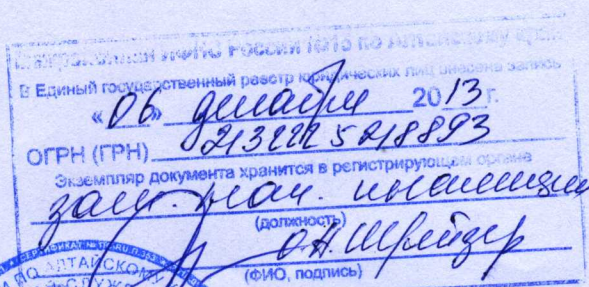 Межрайонная ИФНС России №15 по Алтайскому краю
В Единый государственный реестр юридических лиц внесена запись
«06» декабря 2013 г.
ОГРН (ГРН) 2132225218893
Экземпляр документа хранится в регистрирующем органе
зам. нач. инспекции
(должность)
О.А. Шрейдер
(ФИО, подпись)
АЛТАЙСКОМУ